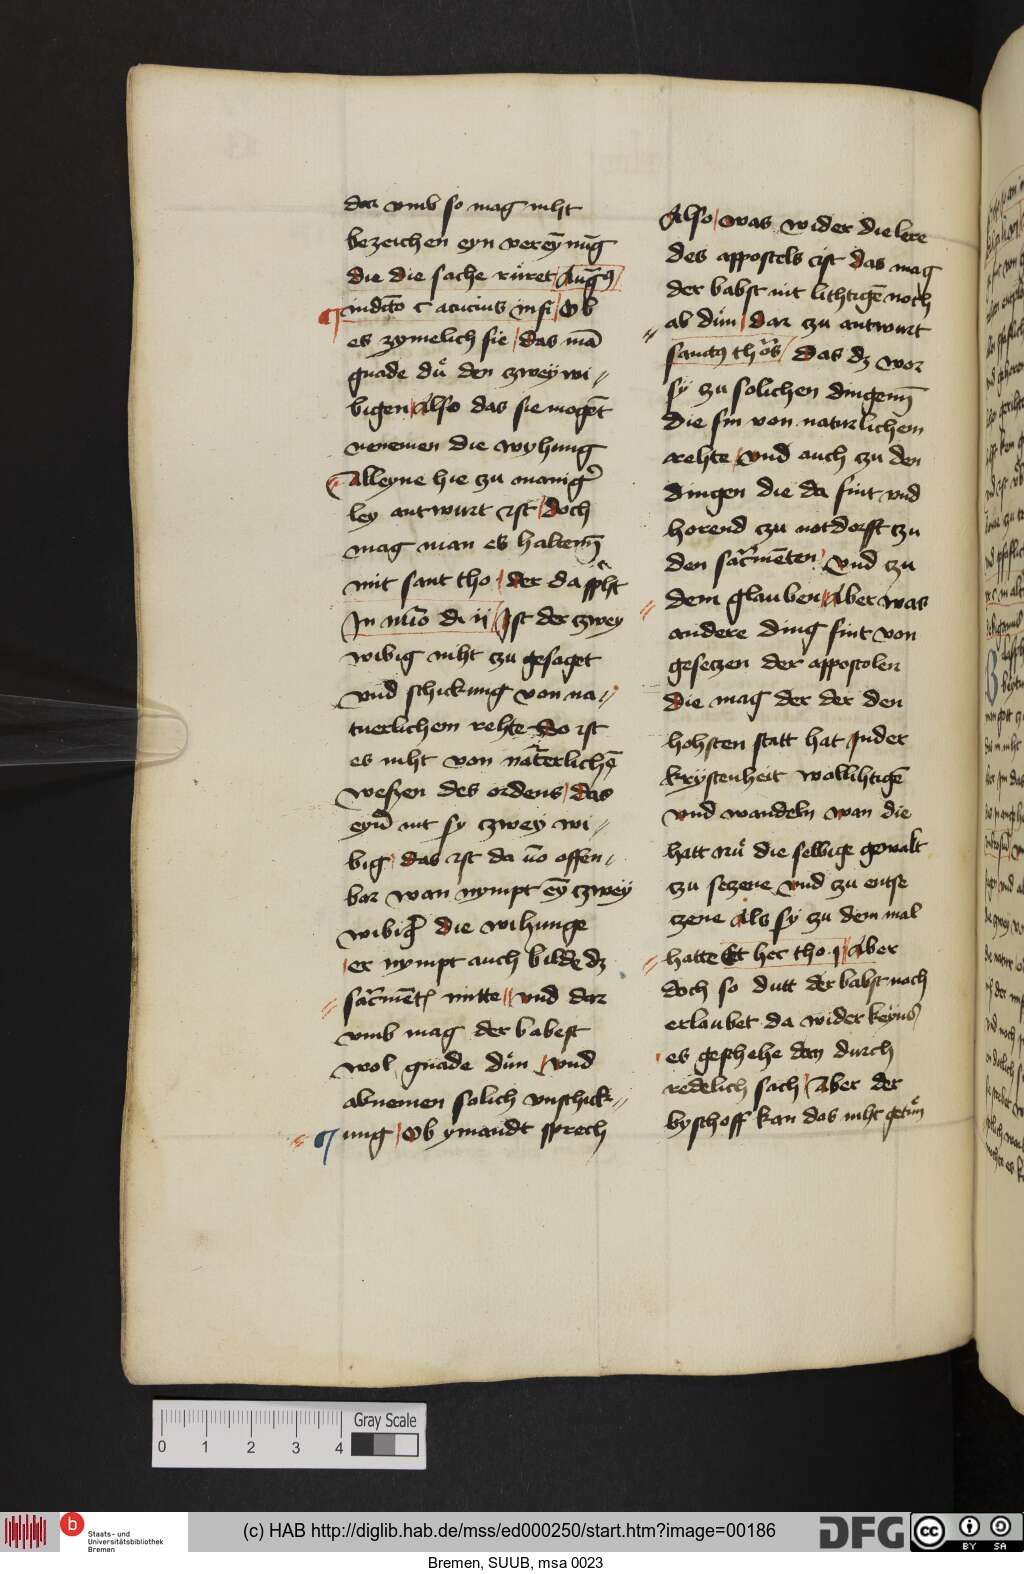 dar vmb so mag niht
bezeichen eyn vereÿnūg
die die sache rüret Augꝰ
indicto c acucius in fi Ob
es zymelich sie das mā
gnade dü den zweÿ wi⸗
bigen Also das sie mogēt
nenemen die wyhung
Alleyne hie zu manig̉
ley antwurt ist doch
mag man es halten
mit sant tho der da spͥcht
In nūo di ij Ist der zwey
wibig niht zu gesaget
vnd schickung von na⸗
tuerlichem rehte do ist
es niht von naterlichē
weszen des ordens das
eyn̄ nit sy zwey wi⸗
big das ist da vō offen⸗
bar wan nympt eȳ zwey
wibig̉ die wihunge
er nympt auch bilde dz
sacͣmēt mitte vnd dar
vmb mag der babest
wol gnade dün vnd
abnemen solich vnschick⸗
ung Ob ymandt sprech
Also was wider die lere
des appostels ist das mag
der babst nit lihtigē noch
ab dün dar zu antwurt
sanctꝰ thōs das dz wor
sy zu solichen dingenn
die sin von naturlichem
rehte vnd auch zu den
dingen die da sint vnd
horend zu notdorfft zu
den sacͣmēten vnd zu
dem glauben Aber was
andere ding sint von
gesetzen der appostolen
die mag der der den
hohsten statt hat Inder
krystenheit wollihtigē
vnd wandeln wan die
hatt nü die selbige gewalt
zu sezene vnd zu entse
zene als sy zu dem mal
hatte Et hec tho. j Aber
doch so dutt der babst noch
erlaubet da wider keyns
es geschehe den durch
redelich sach Aber der
byschoff kan das niht getün
Gray Scale
0 1 2 3 4
b
Staats- und
Universitätsbibliothek
Bremen
(c) HAB http://diglib.hab.de/mss/ed000250/start.htm?image=00186
DFG
cc
BY SA
Bremen, SUUB, msa 0023